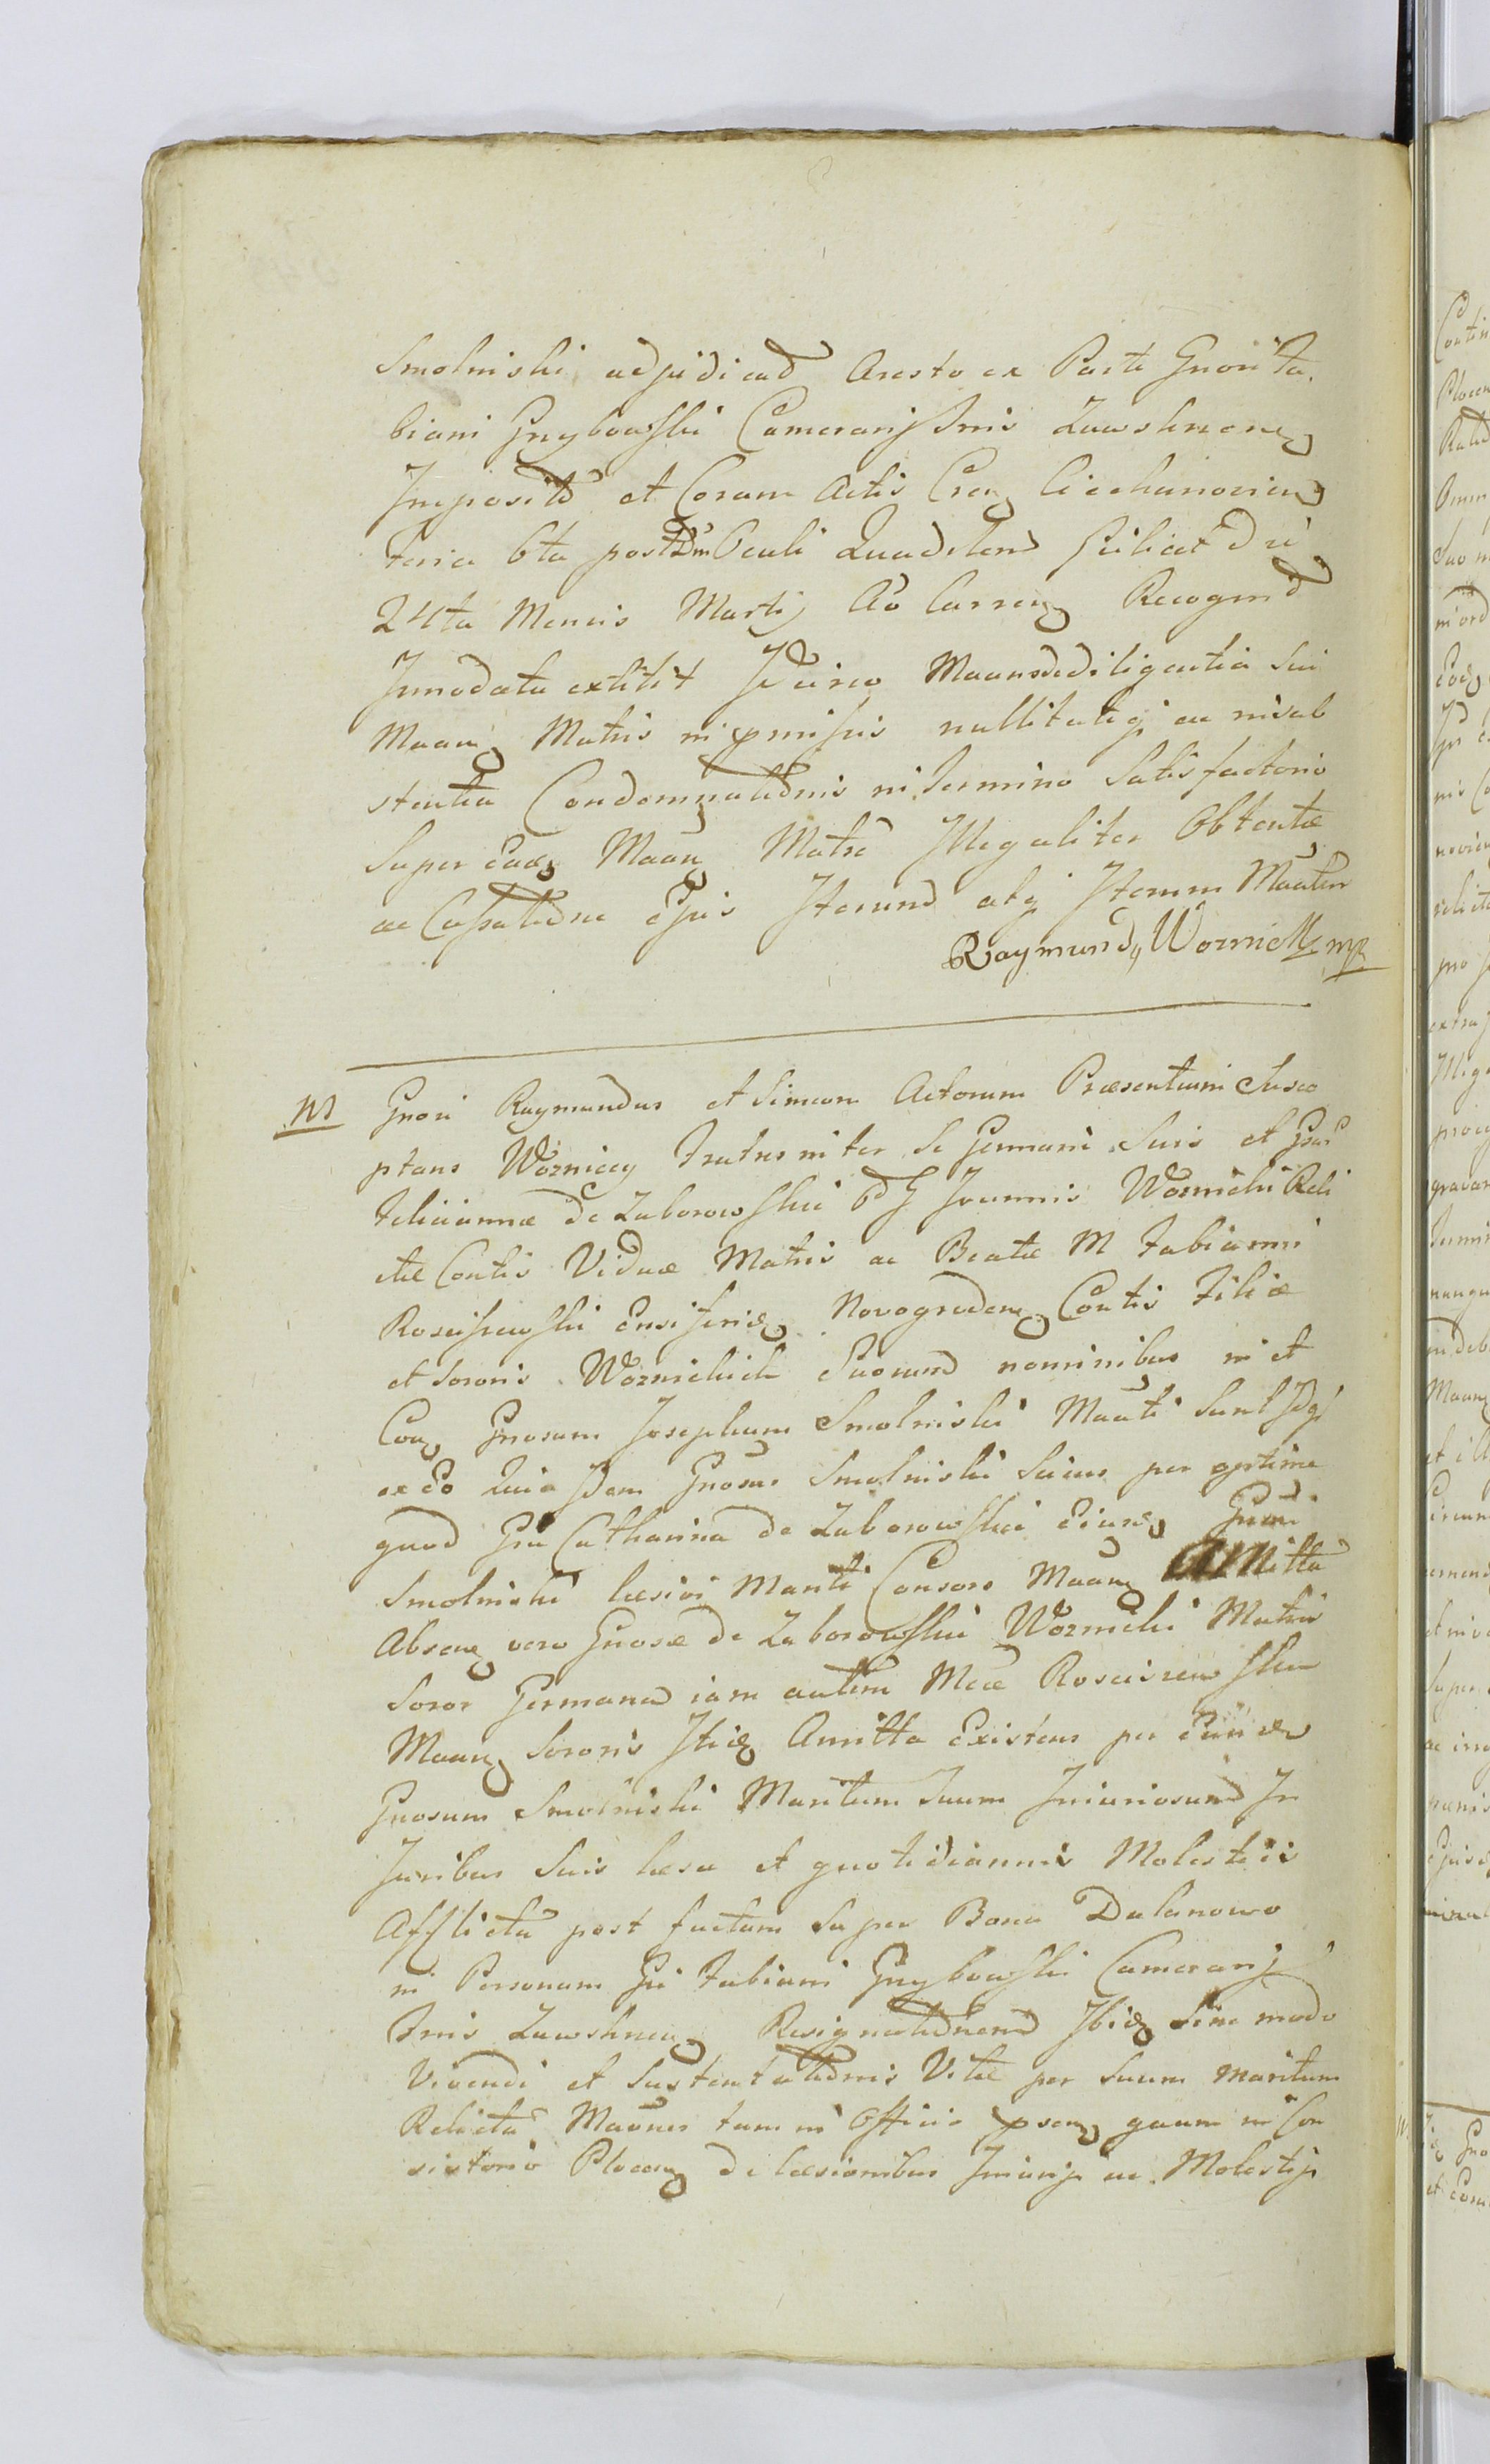 Smolniski adjudicad Aresto ex Parte Gnori Fa,
biani Grzybowski Cameranj Trris Zawskrnens
Imposito et Coram Actis Cren Ciechanovien
feria 6ta post Dm Oculi Quadrlem scilicet die
24ta Mensis Martij Ao Curren Recognd
Innodata extitit Idcirco Maansdediligentia Sui
Maan Matris in pmissis nullitateq ac in sub
stentia Condemnationis in Termino Satisfactorio
Super ead Maan Matre Illegaliter Obtentæ
ac Cassatione Ejus Iterum atq Iterum Maater
Raymundy Woznicki mp
M Gnori Raymundus et Simeon Actorum Præsentium Susce
ptans Wozniccy Fratres inter Se Germani Suis et Gsæ
Feliciannæ de Zaborowskie od G Joannis Woznicki Reli
ctæ Contis Viduæ Matris ac Beatæ M Fabianni
Rosciszewski Ensiferid Novogroden Contis Filiæ
et Sororis Woznickich Suorum nominibus in et
Con Gnosum Josephum Smolniski Maati Sunt Idq
ex Eo Quia Idem Gnosus Smolniski Sciens per optime
quod Gsa Catharina de Zaborowskie Eiusd Gnosi
Smolniski læsivi Mariti Consors Maan Amitta
Absen vero Gnosæ de Zaborowskie Woznicki Matris
Soror Germana iam autem Mcæ Rosciszewska
Maan Sororis Itid Amitta Existens per Eund
Gnosum Smolniski Maritum Suum Iniuriosum In
Juribus Suis læsa et quotidiannis Molestiis
Afflicta post factam Super Bona Dulanowo
in Personam Gsi Fabiani Grzybowski Cameranj
Trris Zawskrnen Resignationem Ibid Sine modo
Vivendi et Sustentationis Vitæ per Suum maritum
Relicta Maones tam in Officio psen quam in Con
sistorio Plocen de læsionibus Iniurijs ac Molestijs